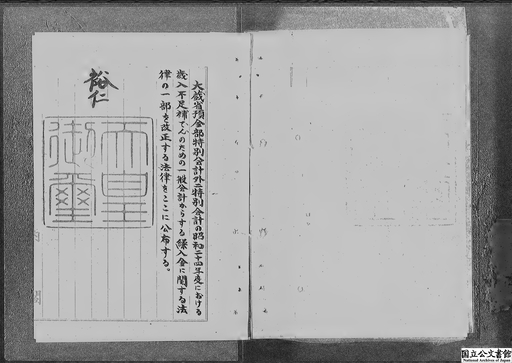 大蔵省預金部特別会計外二特別会計の昭和二十四年度における
歳入不足補てんのための一般会計からする繰入金に関する法
律の一部を改正する法律をここに公布する。
裕仁
天皇
御璽
国立公文書館
National Archives of Japan